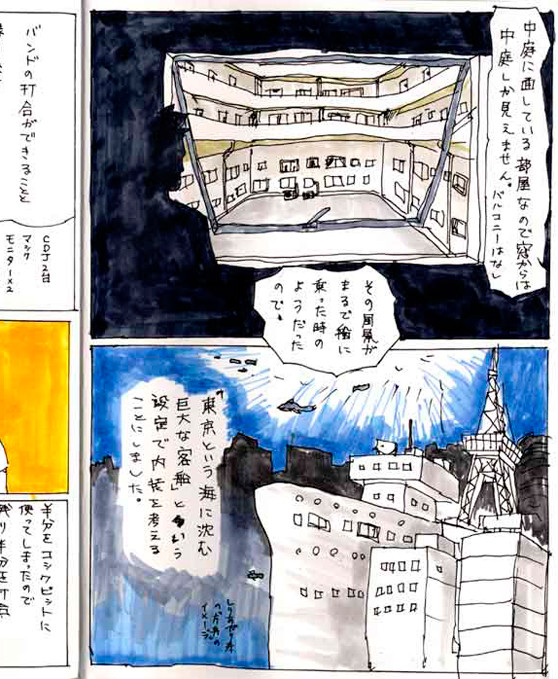 中庭に面している部屋なので窓からは
中庭しか見えません。バルコニーはなし
その風景が
まるで船に
乗った時の
ようだった
ので、
"東京という海に沈む
巨大な客船"という
設定で内装を考える
ことにしました。
イメージ
バンドの打合ができること
CDJ2台
マック
モニター×2
半分をコックピットに
使ってしまったので
残り半分を